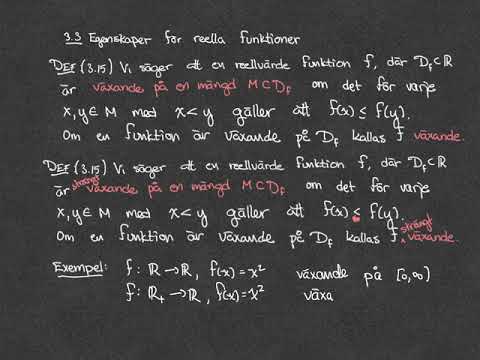 3.3 Egenskaper för reella funktioner
DEF (3.15) Vi säger att en reellvärde funktion f, där D_f ⊂ ℝ
är växande på en mängd M ⊂ D_f om det för varje
x, y ∈ M med x < y gäller att f(x) ≤ f(y).
Om en funktion är växande på D_f kallas f växande.
DEF (3.15) Vi säger att en reellvärde funktion f, där D_f ⊂ ℝ
är strängt växande på en mängd M ⊂ D_f om det för varje
x, y ∈ M med x < y gäller att f(x) < f(y).
Om en funktion är växande på D_f kallas f strängt växande.
Exempel: f: ℝ → ℝ, f(x) = x² växande på [0,∞)
f: ℝ₊ → ℝ, f(x) = x² växa